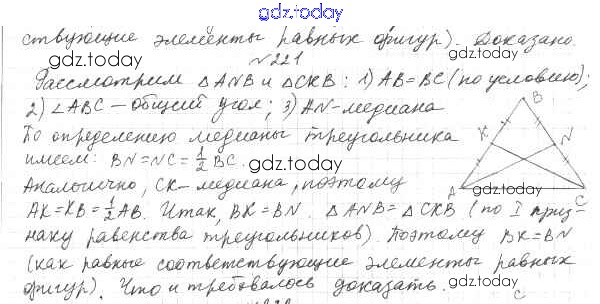 gdz.today
ствующие элементы равных фигур). Доказано.
gdz.today
№221
gdz.today
Рассмотрим △ANB и △CKB: 1) AB=BC (по условию);
2) ∠ABC – общий угол; 3) AN-медиана
По определению медианы треугольника
имеем: BN=NC=1/2 BC.
gdz.today
Аналогично, CK-медиана, поэтому
AK=KB=1/2 AB. Итак, BK=BN. △ANB=△CKB (по I приз-
наку равенства треугольников). Поэтому BK=BN
gdz.today
(как равные соответствующие элементы равных
фигур). Что и требовалось доказать.
gdz.today
B
K
N
A
C
gdz.today